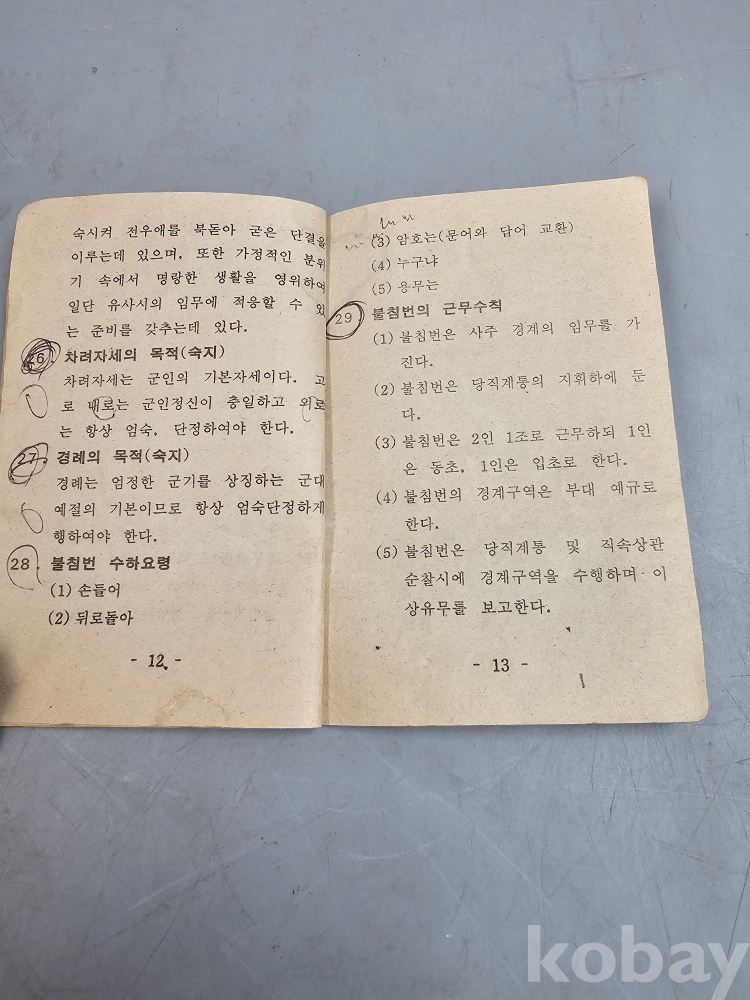 숙시켜 전우애를 북돋아 굳은 단결을
이루는데 있으며, 또한 가정적인 분위
기 속에서 명랑한 생활을 영위하여
일단 유사시의 임무에 적응할 수 있
는 준비를 갖추는데 있다.
26. 차려자세의 목적(숙지)
차려자세는 군인의 기본자세이다. 고
로 내로는 군인정신이 충일하고 외로
는 항상 엄숙, 단정하여야 한다.
27. 경례의 목적(숙지)
경례는 엄정한 군기를 상징하는 군대
예절의 기본이므로 항상 엄숙단정하게
행하여야 한다.
28. 불침번 수하요령
(1) 손들어
(2) 뒤로돌아
- 12 -
(3) 암호는(문어와 답어 교환)
(4) 누구냐
(5) 용무는
29 불침번의 근무수칙
(1) 불침번은 사주 경계의 임무를 가
진다.
(2) 불침번은 당직계통의 지휘하에 둔
다.
(3) 불침번은 2인 1조로 근무하되 1인
은 동초, 1인은 입초로 한다.
(4) 불침번의 경계구역은 부대 예규로
한다.
(5) 불침번은 당직계통 및 직속상관
순찰시에 경계구역을 수행하며 이
상유무를 보고한다.
- 13 -
kobay